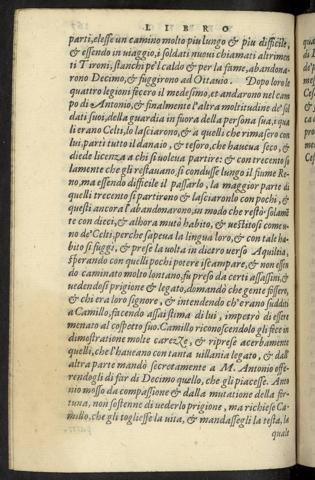 LIBRO
parti, elesse un camino molto piu lungo & piu difficile,
& essendo in uiaggio, i soldati nuoui chiamati altrimen
ti Tironi, stanchi pe'l caldo & per la fame, abandona-
rono Decimo, & fuggirono ad Ottauio. Dopo loro le
quattro legioni fecero il medesimo, et andarono nel cam
po di Antonio, & finalmente l'altra moltitudine de' sol
dati suoi, della guardia in fuora della persona sua, i qua
li erano Celti, lo lasciarono, & a quelli che rimasero con
lui parti tutto il danaio, & tesoro, che haueua seco, &
diede licenza a chi si uoleua partire: & con trecento so
lamente che gli restauano, si condusse lungo il fiume Re-
no, ma essendo difficile il passarlo, la maggior parte di
quelli trecento si partirono & lasciaronlo con pochi, &
questi ancora l'abandonarono, in modo che restò solamē
te con dieci, & alhora mutò habito, & uestitosi comeu-
no de' Celti, perche sapeua la lingua loro, & con tale ha-
bito si fuggì, & prese la uolta in dietro uerso Aquileia,
sperando con quelli pochi potere iscampare, & non essen
do caminato molto lontano, fu preso da certi assassini, &
uedendosi prigione & legato, domandò che gente fossero,
& chi era loro signore, & intendendo ch'erano sudditi
a Camillo, facendo assai stima di lui, impetrò di essere
menato al cospetto suo. Camillo riconoscendolo gli fece in
dimostratione molte carezze, & riprese acerbamente
quelli, che l'haueano con tanta uillania legato, & dall'
altra parte mandò secretamente a M. Antonio offe-
rendogli di far di Decimo quello, che gli piacesse. Anto
nio mosso da compassione & dalla mutatione della for-
tuna, non sostenne di uederlo prigione, ma richiese Ca-
millo, che gli togliesse la uita, & mandassegli la testa, la
quale